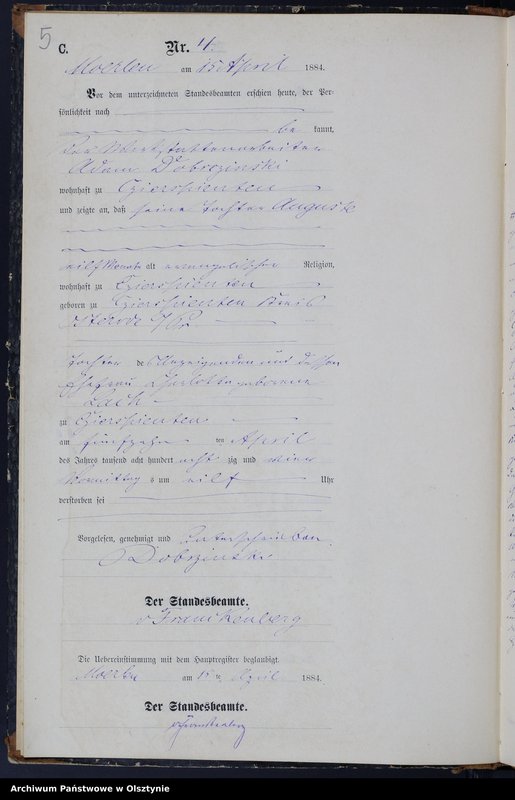 5
C. Nr. 4.
Moerlen am 15 April 1884.
Vor dem unterzeichneten Standesbeamten erschien heute, der Per-
sönlichkeit nach
be kannt,
der
Adam Dobrzinski
wohnhaft zu Gierspienten
und zeigte an, daß seine Tochter Auguste
eilf Monate alt evangelischer Religion,
wohnhaft zu Gierspienten
geboren zu Gierspienten Kreis
Osterode O/Pr.
Tochter des Anzeigenden und dessen
Ehefrau Charlotte geborene
Lach
zu Gierspienten
am fünfzehn ten April
des Jahres tausend acht hundert acht zig und vier
Vormittags um eilf Uhr
verstorben sei
Vorgelesen, genehmigt und unterschrieben
Dobrzinski
Der Standesbeamte.
v Franckenberg
Die Uebereinstimmung mit dem Hauptregister beglaubigt.
Moerlen am 15 ten April 1884.
Der Standesbeamte.
v Franckenberg
Archiwum Państwowe w Olsztynie